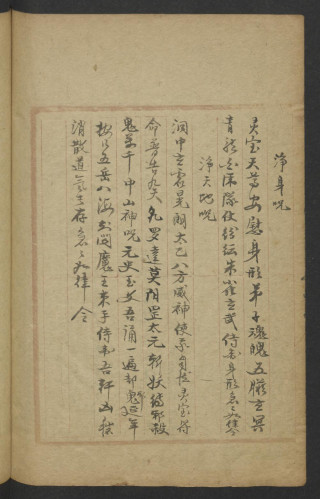 淨身呪
灵宝天尊安慰身形弟子魂魄五臓玄冥
青龙白虎隊仗紛紜朱雀玄武侍韦身形急々如律令
淨天地呪
洞中玄虛晃朗太乙八方威神使吾自然灵宝符
命普告九天乹罗達莫洞罡太元斬妖縛邪殺
鬼萬千中山神呪元史玉文吾誦一遍却鬼延年
按行五岳八海知聞魔王束手侍韦吾軒凶秽
消散道炁長存急々如律令